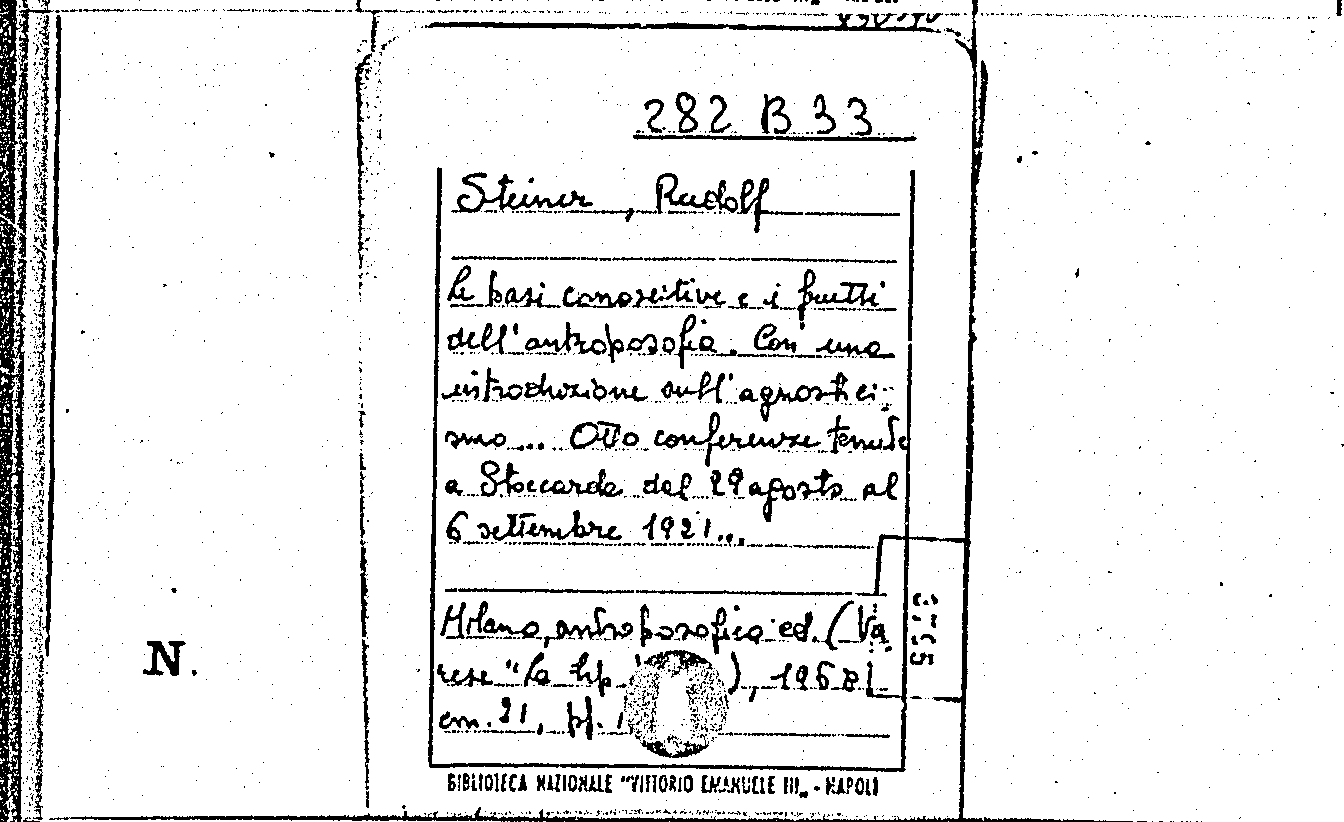 282 B 33
Steiner, Rudolf
Le basi conoscitive e i frutti
dell'antroposofia. Con una
introduzione sull'agnostici-
smo... Otto conferenze tenute
a Stoccarda dal 29 agosto al
6 settembre 1921...
Milano, antroposofica ed. (Va
rese "La tip. ), 1968
cm. 21, pp. 1
3755
N.
BIBLIOTECA NAZIONALE "VITTORIO EMANUELE III„ - NAPOLI